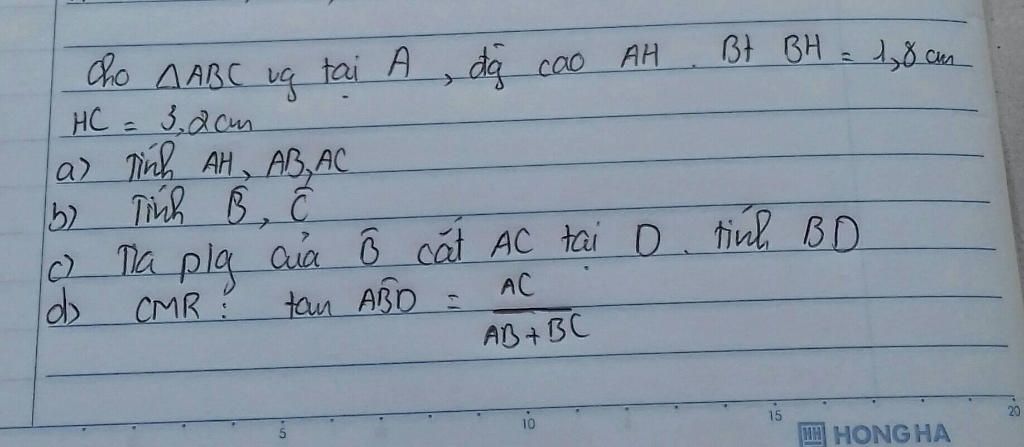 Cho △ABC vg tại A, đg cao AH. Bt BH = 1,8 cm
HC = 3,2cm
a) Tính AH, AB, AC
b) Tính B̂, Ĉ
c) Tia p/g của B̂ cắt AC tại D. tính BD
d) CMR: tan AB̂D = AC / AB + BC
5 10 15 20
HH HONG HA